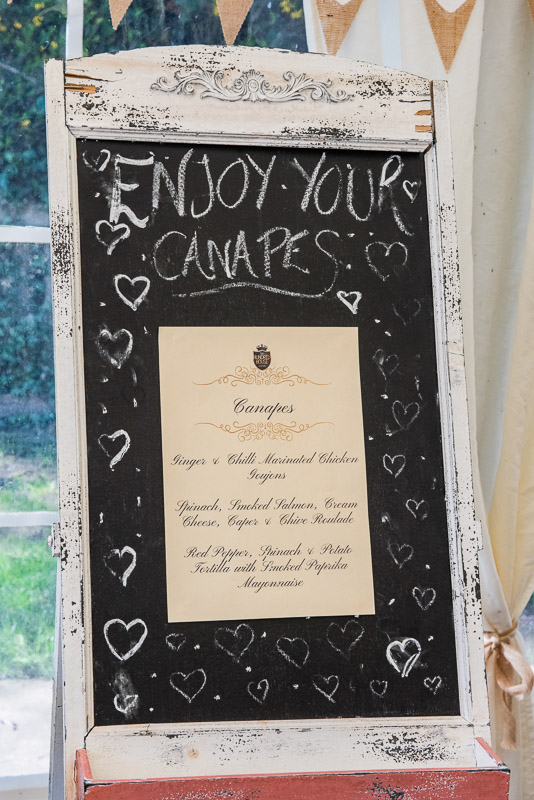 ENJOY YOUR
CANAPES
HUNDRED
HOUSE
Canapes
Ginger & Chilli Marinated Chicken
Goujons
Spinach, Smoked Salmon, Cream
Cheese, Caper & Chive Roulade
Red Pepper, Spinach & Potato
Tortilla with Smoked Paprika
Mayonnaise